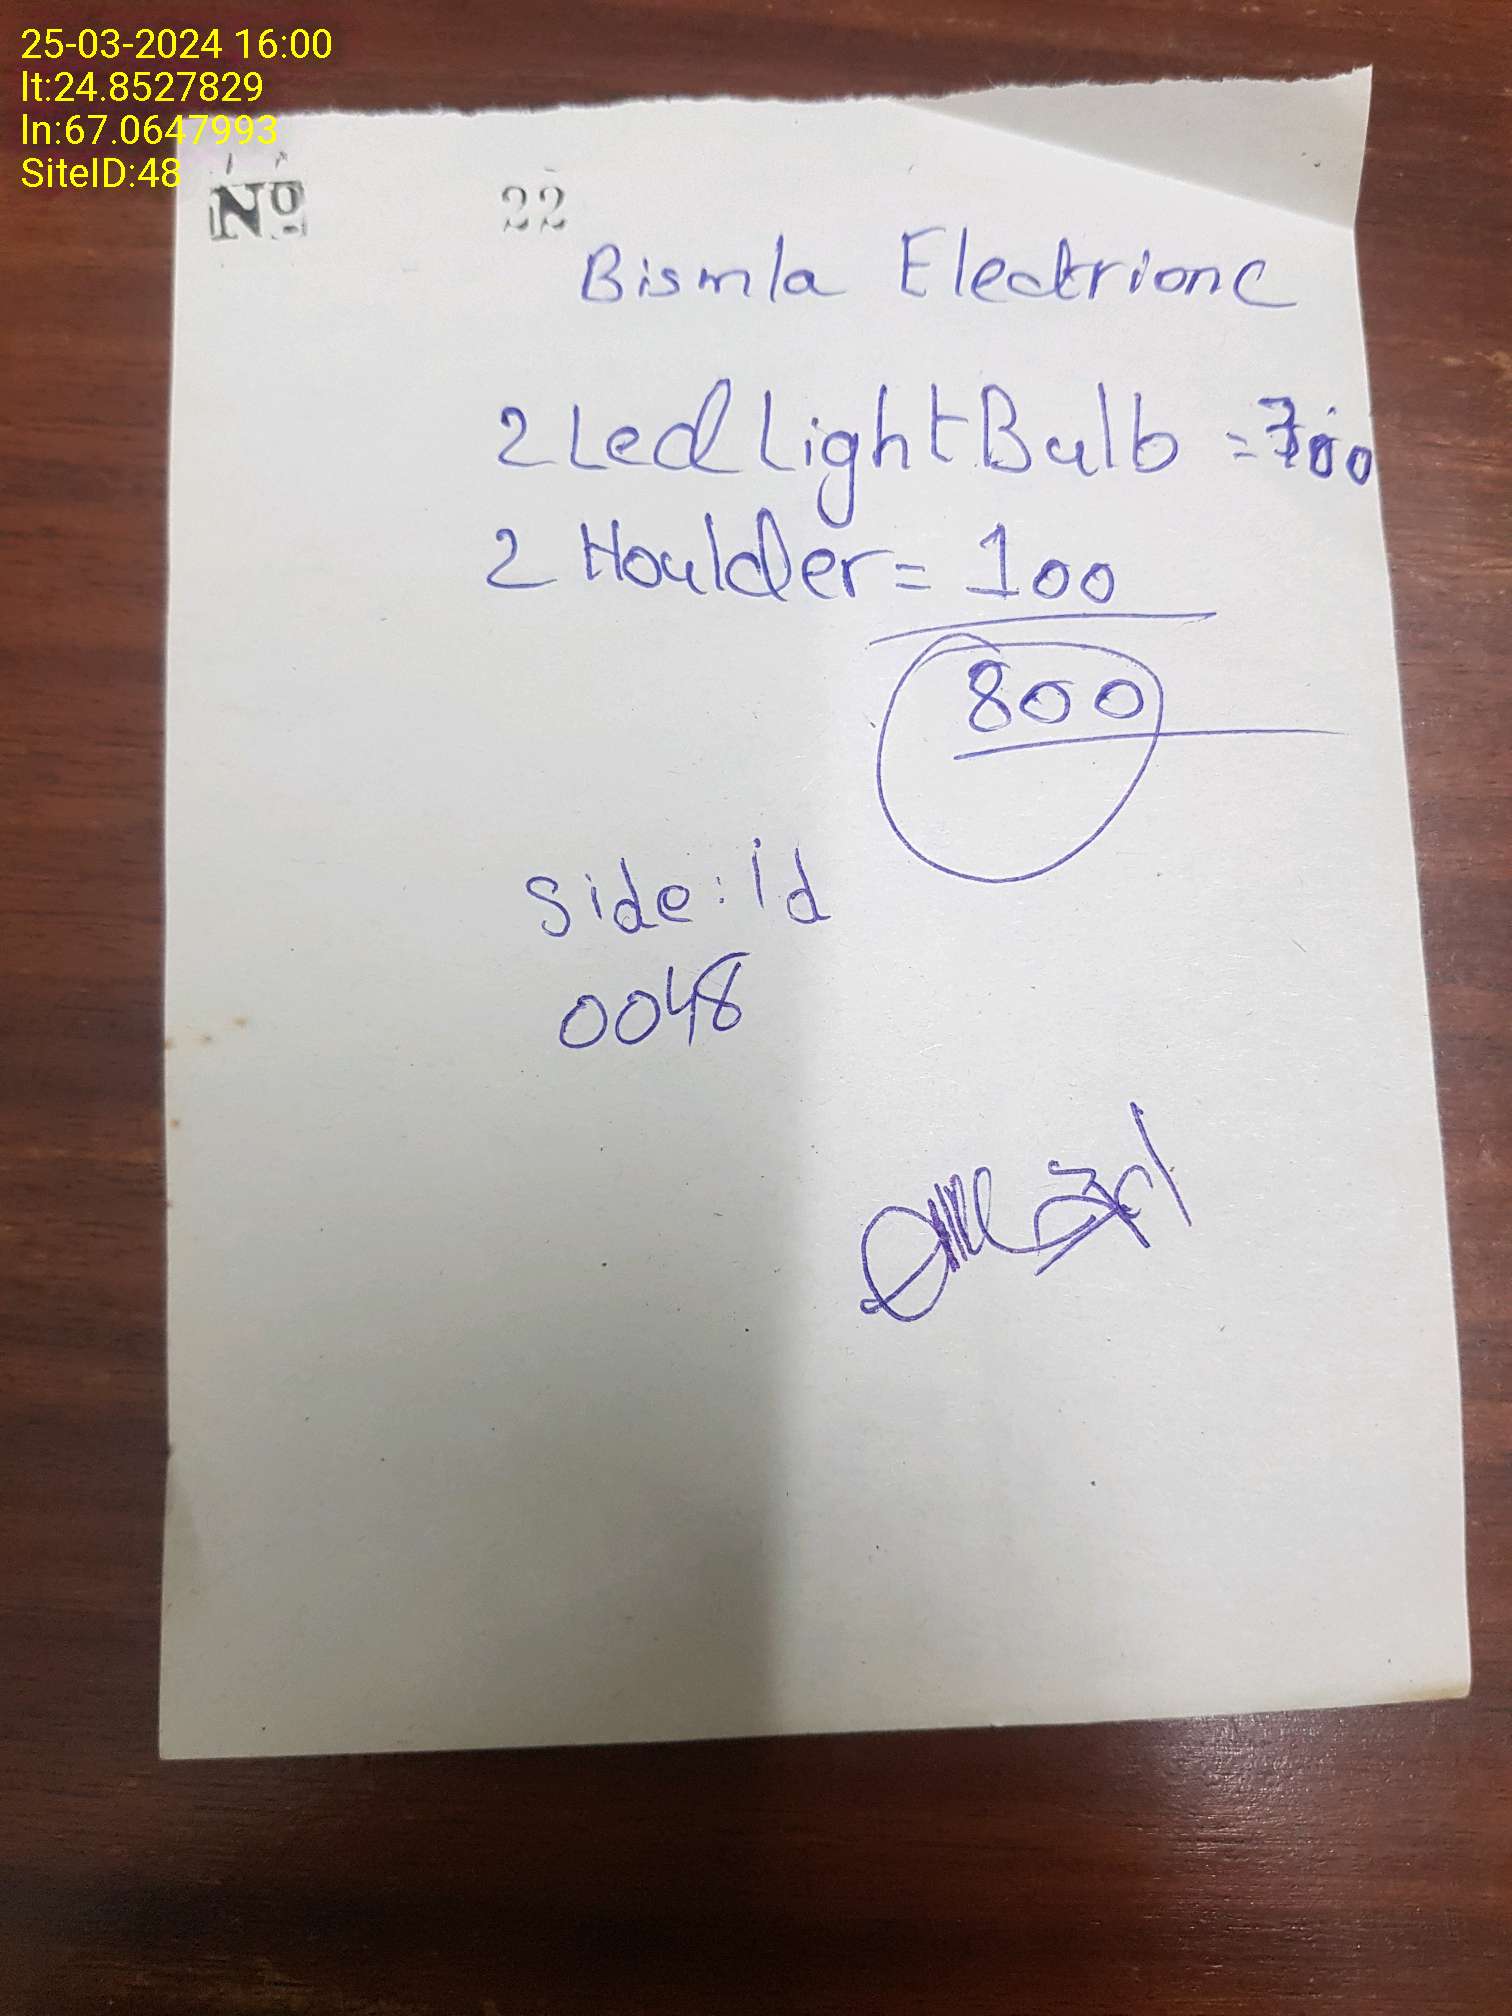 25-03-2024 16:00
lt:24.8527829
ln:67.0647993
SiteID:48
Nº 22
Bismla Electrionc
2 Led Light Bulb = 700
2 Houlder = 100
800
Side: id
0048